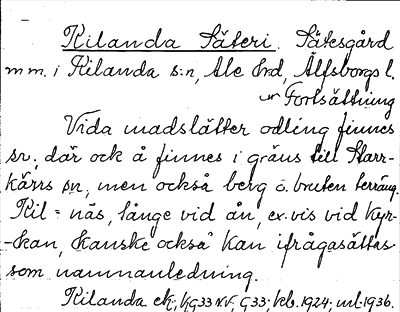 Kilanda Säteri. Sätesgård
m m. i Kilanda s:n, Ale hrd, Älfsborgs l.
Fortsättning
Vida madslätter odling finnes
sn; där ock å finnes i gräns till Starr-
kärrs sn, men också berg o. bruten terräng.
Kil = näs, långe vid ån, ex.vis vid Kyr-
-kan, kanske också kan ifrågasättas
som namnanledning.
Kilanda ek; kg 33 N.V, G 33; kb. 1924; utl. 1936.